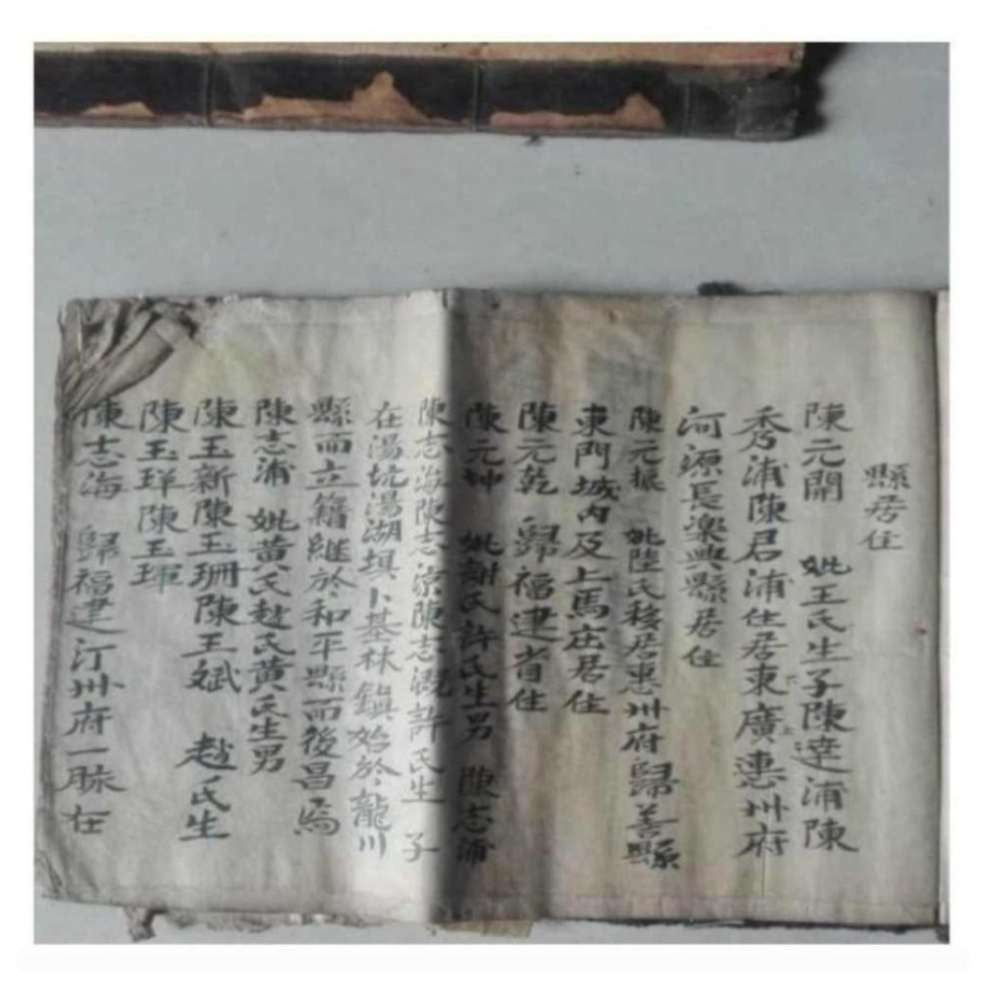 縣居住
陳元開 妣王氏生子陳達浦陳
秀浦陳君浦住居東廣惠州府
河源長樂興縣居住
陳元振 妣陸氏移居惠州府歸善縣
東門城內及上馬庄居住
陳元乾 歸福建省住
陳元坤 妣謝氏許氏生男 陳志浦
陳志海陳志崇陳志溉許氏生 子
在湯坑湯湖埧卜基林鎮始於龍川
縣而立籍継於和平縣而後昌焉
陳志浦 妣黄氏赵氏黄氏生男
陳玉新陳玉珊陳玉斌 赵氏生
陳玉珜陳玉琿
陳志海 歸福建汀州府一脉在